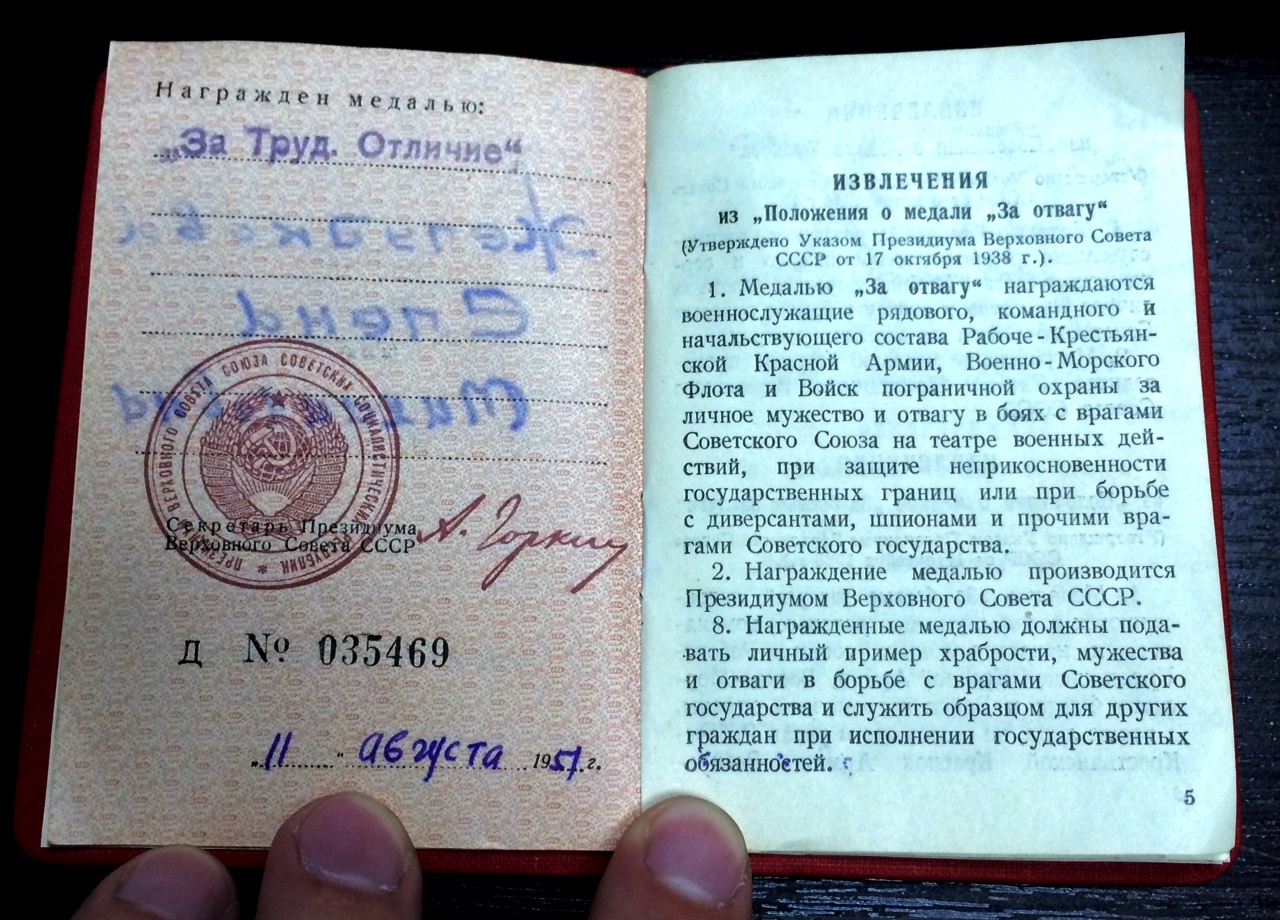 Награжден медалью:
„За Труд. Отличие“
Секретарь Президиума
Верховного Совета СССР
А. Горкин
Д № 035469
„11“ августа 1957 г.
ИЗВЛЕЧЕНИЯ
из „Положения о медали „За отвагу“
(Утверждено Указом Президиума Верховного Совета
СССР от 17 октября 1938 г.).
1. Медалью „За отвагу“ награждаются
военнослужащие рядового, командного и
начальствующего состава Рабоче-Крестьян-
ской Красной Армии, Военно-Морского
Флота и Войск пограничной охраны за
личное мужество и отвагу в боях с врагами
Советского Союза на театре военных дей-
ствий, при защите неприкосновенности
государственных границ или при борьбе
с диверсантами, шпионами и прочими вра-
гами Советского государства.
2. Награждение медалью производится
Президиумом Верховного Совета СССР.
8. Награжденные медалью должны пода-
вать личный пример храбрости, мужества
и отваги в борьбе с врагами Советского
государства и служить образцом для других
граждан при исполнении государственных
обязанностей.
5